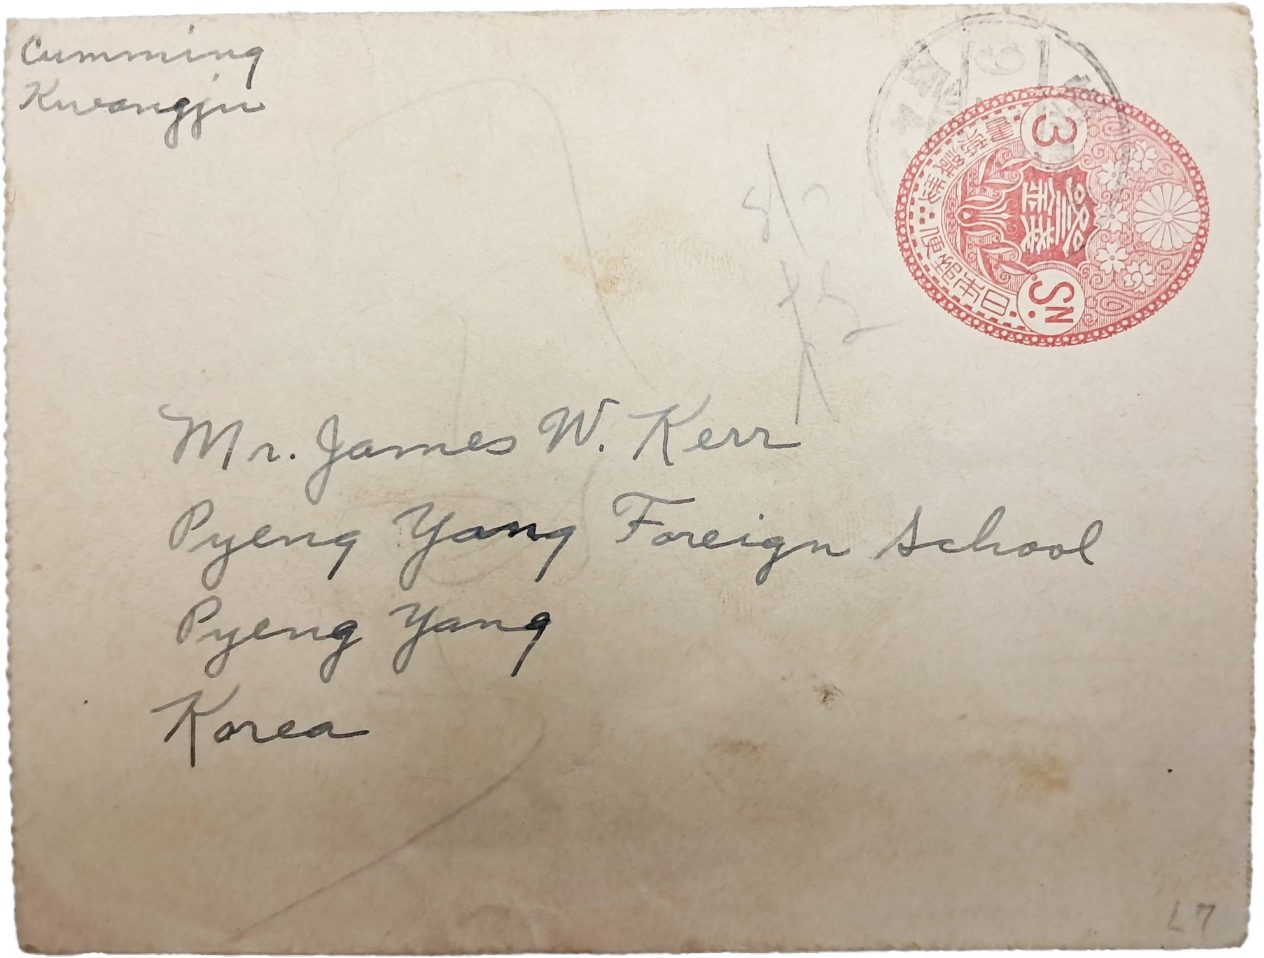 Cumming
Kwangju
3
Sn.
Mr. James W. Kerr
Pyeng Yang Foreign School
Pyeng Yang
Korea
L7